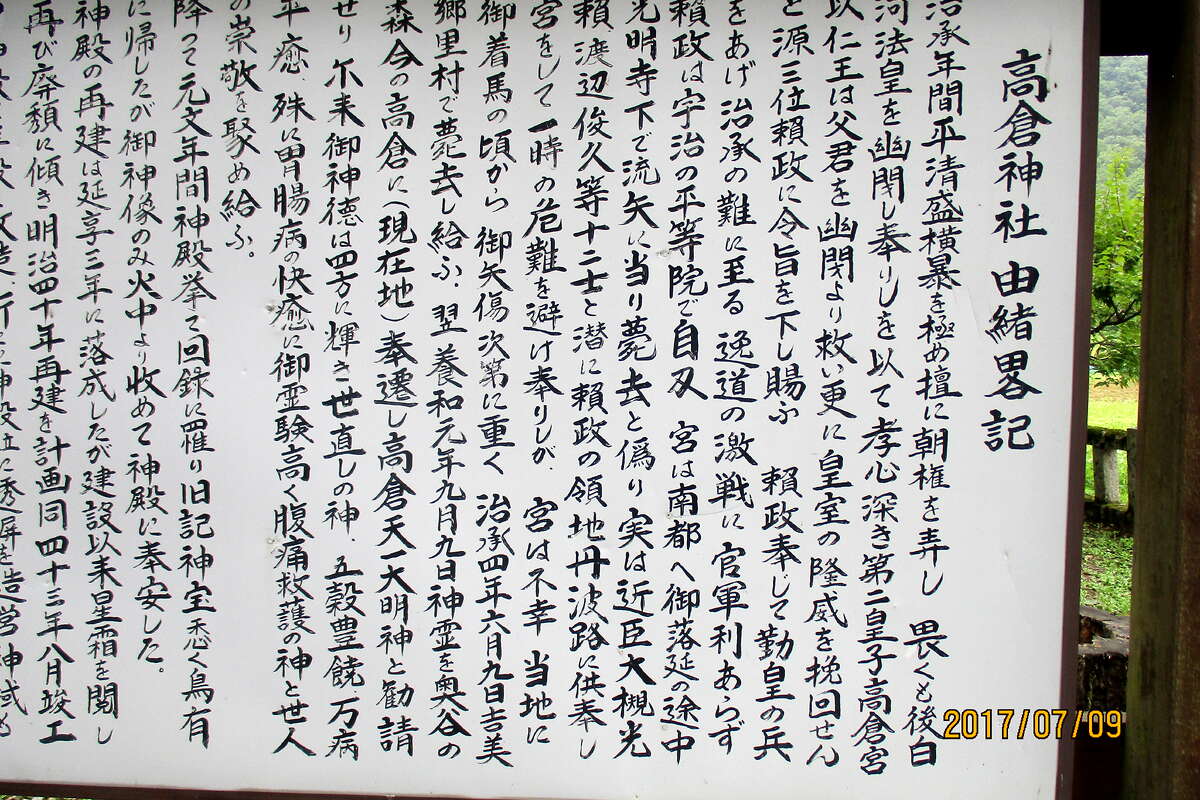 高倉神社由緒畧記
治承年間平清盛横暴を極め擅に朝権を弄し 畏くも後白
河法皇を幽閉し奉りしを以て孝心深き第二皇子高倉宮
以仁王は父君を幽閉より救い更に皇室の隆威を挽回せん
と源三位頼政に令旨を下し賜ふ 頼政奉じて勤皇の兵
をあげ治承の難に至る 逸道の激戦に官軍利あらず
頼政は宇治の平等院で自刃 宮は南都へ御落延の途中
光明寺下で流矢に当り薨去と偽り実は近臣大槻光
頼、渡辺俊久等十二士と潜に頼政の領地丹波路に供奉し
宮をして一時の危難を避け奉りしが、宮は不幸 当地に
御着馬の頃から 御矢傷次第に重く 治承四年六月九日吉美
郷里村で薨去し給ふ、翌養和元年九月九日神霊を奥谷の
森今の高倉に(現在地)奉遷し高倉天一大明神と勧請
せり 尓来御神徳は四方に輝き世直しの神、五穀豊饒、万病
平癒、殊に胃腸病の快癒に御霊験高く腹痛救護の神と世人
の崇敬を聚め給ふ。
降って元文年間神殿挙て回録に罹り旧記神宝悉く烏有
に帰したが御神像のみ火中より收めて神殿に奉安した。
神殿の再建は延享三年に落成したが建設以来星霜を閲し
再び廃頽に傾き明治四十年再建を計画同四十三年八月竣工
2017/07/09